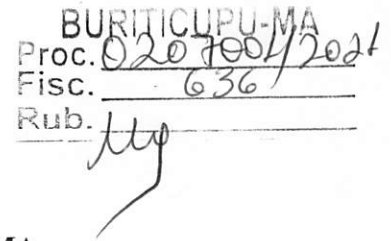 BURITICUPU-MA
Proc. 0207001/2021
Fisc. 636
Rub.